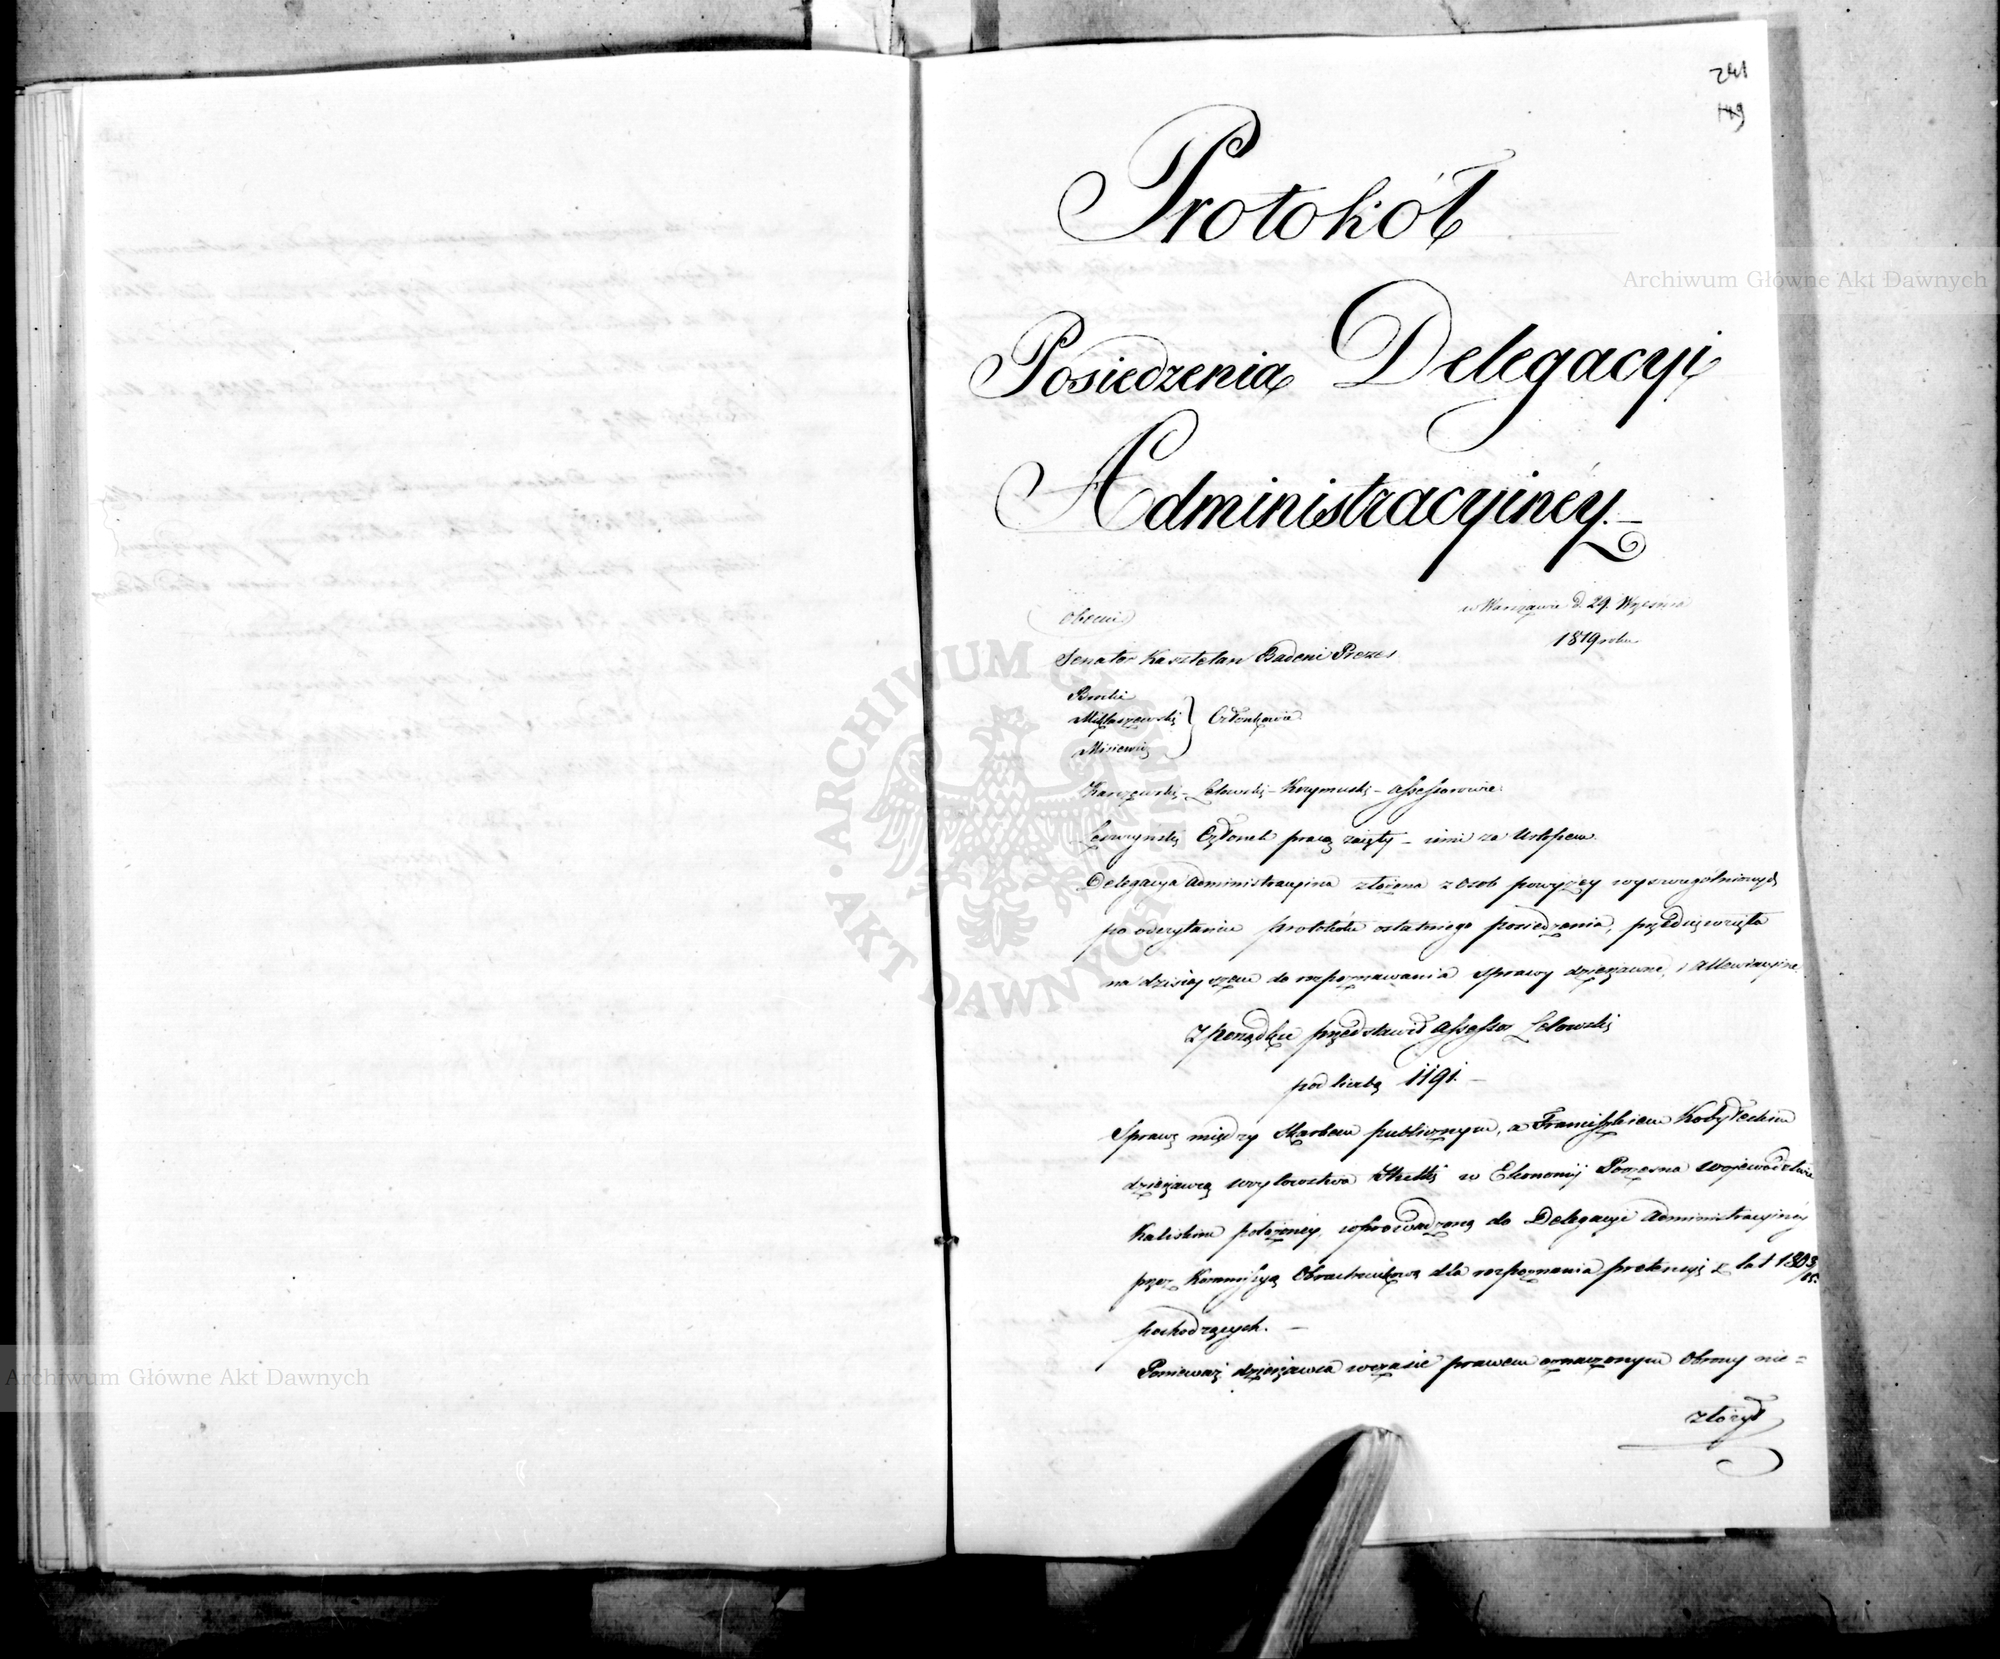 241
149
Protokół
Posiedzenia Delegacyi
Administracyinéy.
w Warszawie d. 29. Września
1819 roku
Obecni
Senator Kasztelan Badeni Prezes
Miklaszewski } Członkowie
Misiewicz
Karczewski – Lelowski – Krzymuski – Assessorowie
Członek pracą zaięty – inni za Urlopem
Delegacya Administracyina złożona z osob powyżey wyszczególnionych
po odczytaniu protokułu ostatniego posiedzenia, przedsięwzięła
na dzisieyszem do rozpoznawania sprawy dzierżawne, i
Z porządku przedstawił Assessor Lelowski
pod liczbą 1191. –
Sprawę między Skarbem publicznym, a Franciszkiem Kobyłeckim
dzierżawcą w Ekonomij Województwie
Kaliskim położoney, wprowadzoną do Delegacyi Administracyiney
przez Kommissyą Obrachunkową dla rozpoznania pretensyi z lat 1808/
pochodzących. –
Ponieważ dzierżawca w czasie prawem oznaczonym Obrony nie=
złożył
Archiwum Główne Akt Dawnych
Archiwum Główne Akt Dawnych
ARCHIWUM GŁÓWNE AKT DAWNYCH